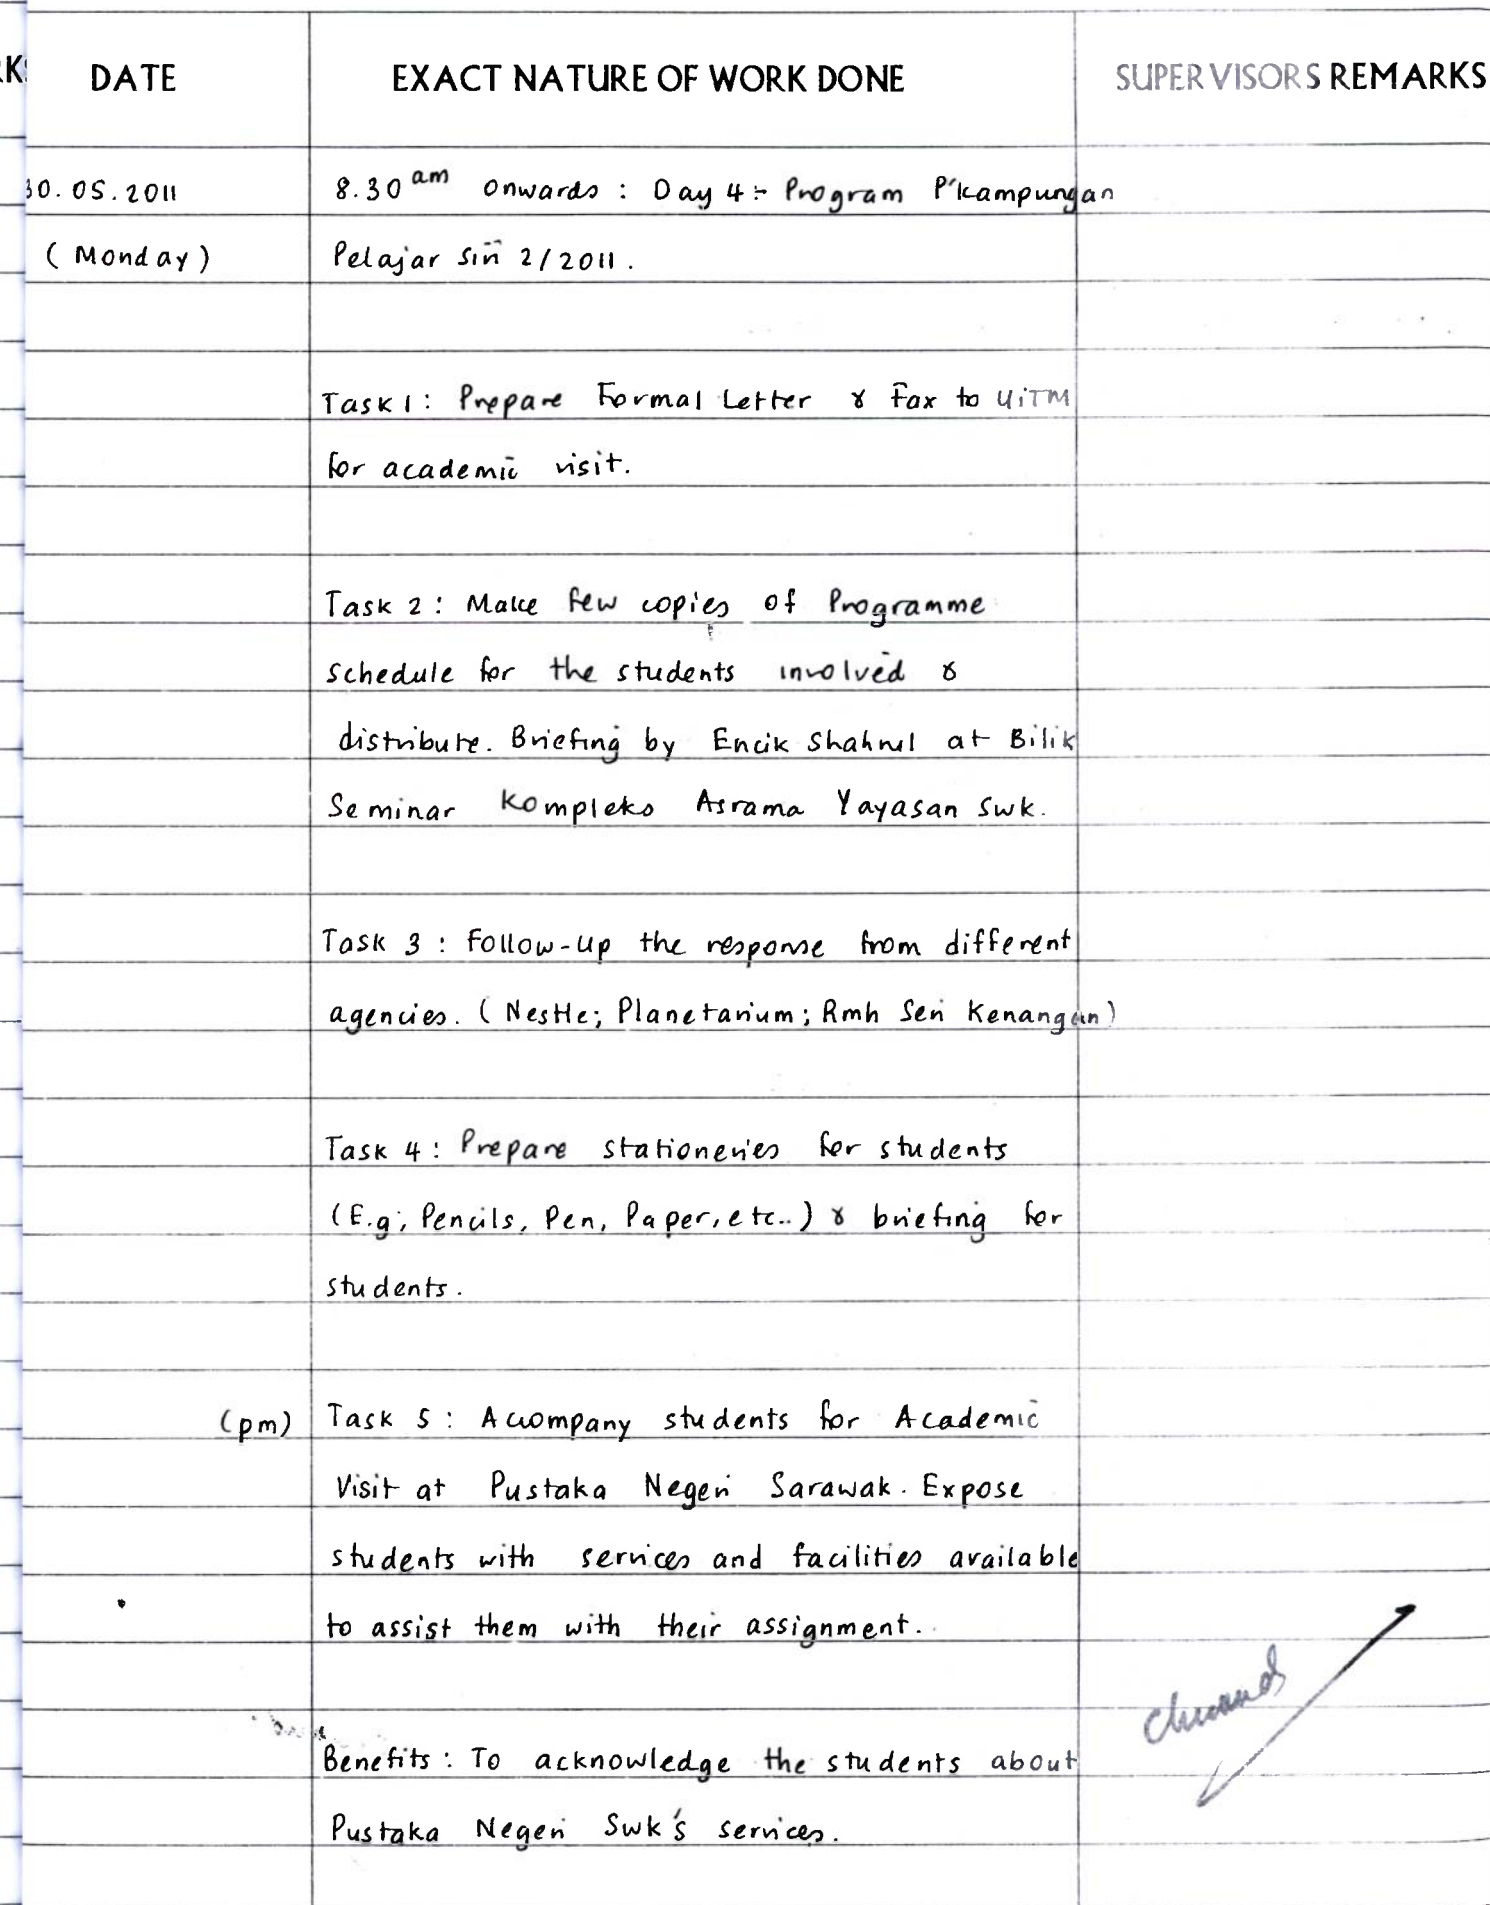 DATE EXACT NATURE OF WORK DONE SUPERVISORS REMARKS
30.05.2011 8.30 am onwards : Day 4 :- Program P'kampungan
(Monday) Pelajar Siri 2/2011.
Task 1: Prepare Formal Letter & Fax to UiTM
for academic visit.
Task 2: Make few copies of Programme
schedule for the students involved &
distribute. Briefing by Encik Shahrul at Bilik
Seminar Kompleks Asrama Yayasan Swk.
Task 3 : Follow-up the response from different
agencies. (Nestle; Planetarium; Rmh Seri Kenangan)
Task 4 : Prepare stationeries for students
(E.g; Pencils, Pen, Paper, etc..) & briefing for
students.
(pm) Task 5 : Accompany students for Academic
Visit at Pustaka Negeri Sarawak. Expose
students with services and facilities available
to assist them with their assignment.
Benefits : To acknowledge the students about
Pustaka Negeri Swk's services.